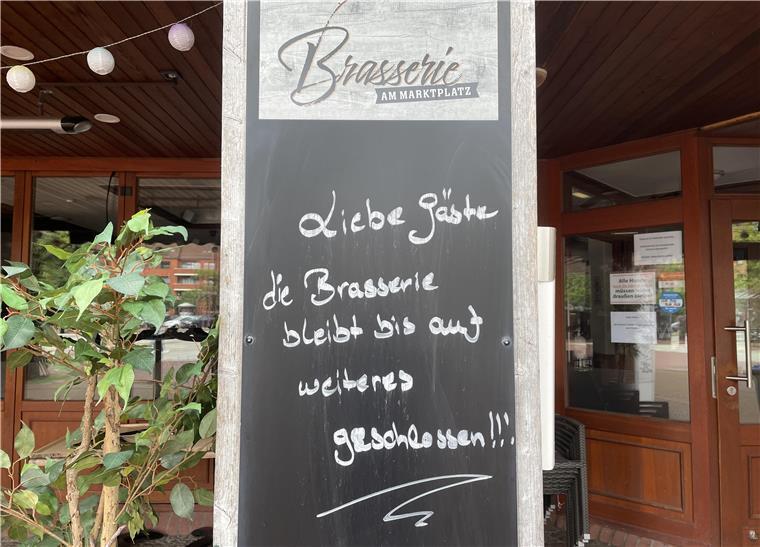 Brasserie
AM MARKTPLATZ
Liebe Gäste
die Brasserie
bleibt bis auf
weiteres
geschlossen!!!
Alle Hunde
müssen
draußen